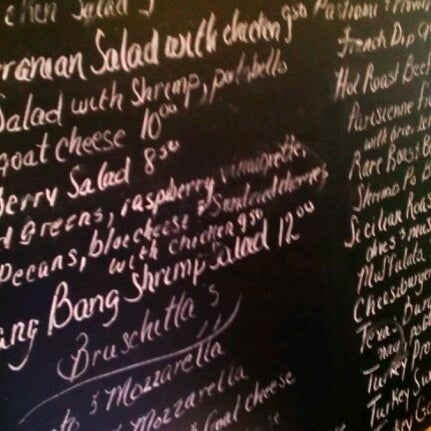 Salad
ranean Salad with chicken 9 50
Salad with Shrimp, portobello
Goat cheese 10 00
Berry Salad 8 50
d Greens, raspberry vinaigrette,
Pecans, blue cheese & Sundried cherries
with chicken 9 50
ang Bang Shrimp Salad 12 00
Bruschitta's
& Mozzarella
& Mozzarella
& Goat cheese
Pastrami &
French Dip
Hot Roast Beef
Parisienne
with brie
Rare Roast B
Shrimp Po B
Sicilian Roas
olives & mus
Muffalata
Cheeseburger
Texas Bur
Turkey Pro
Turkey Su
Turkey Go